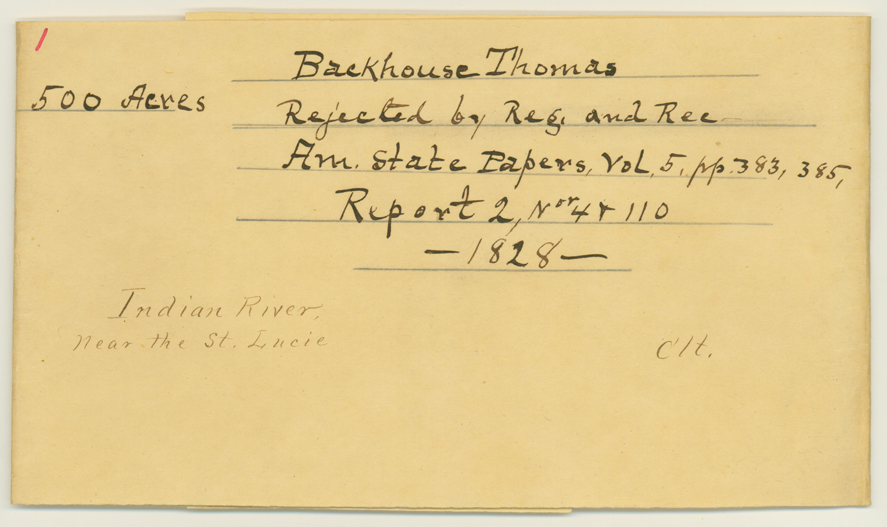 1
Backhouse Thomas
500 Acres
Rejected by Reg. and Rec
Am. State Papers, Vol. 5, pp. 383, 385,
Report 2, Nos 4 & 110
— 1828 —
Indian River,
near the St. Lucie
Clt.